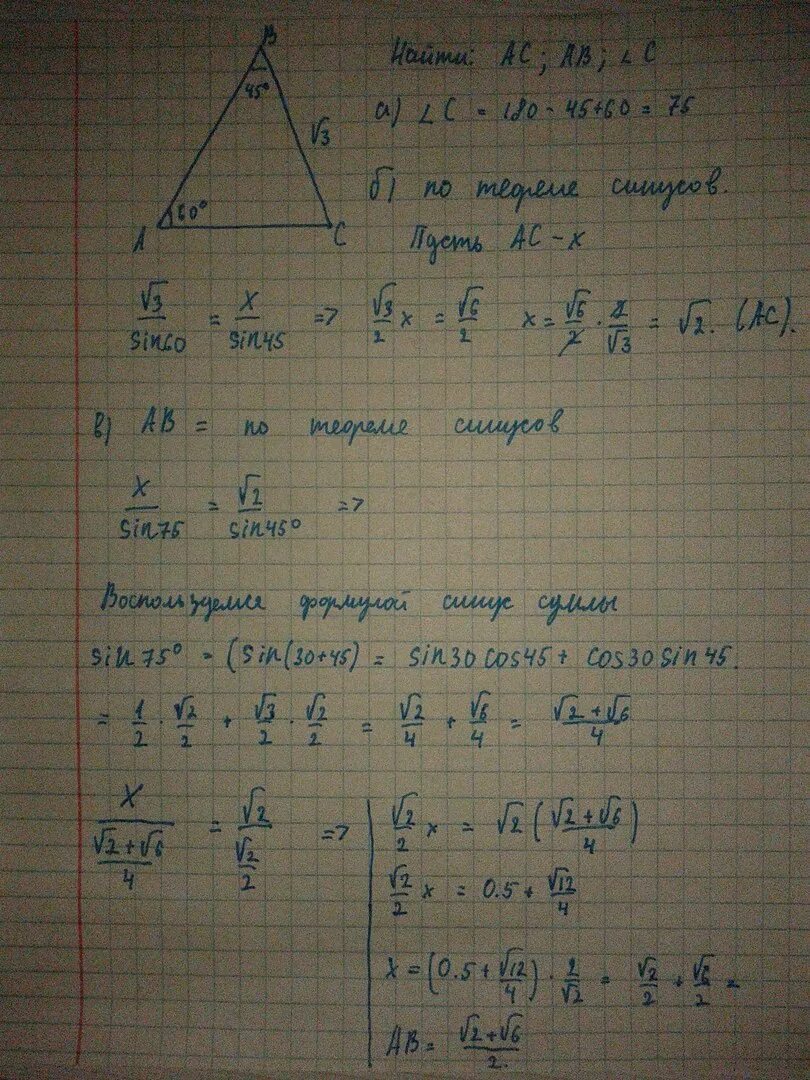 B
45°
√3
60°
A
C
Найти: AC; AB; ∠C
а) ∠C = 180 - 45+60 = 75
б) по теореме синусов.
Пусть AC - x
√3/sin60 = x/sin45 => √3/2 x = √6/2 x = √6/2 · 2/√3 = √2. (AC).
в) AB = по теореме синусов
x/sin75 = √2/sin45° =>
Воспользуемся формулой синус суммы
sin75° = (sin(30+45) = sin30 cos45 + cos30 sin45.
= 1/2 · √2/2 + √3/2 · √2/2 = √2/4 + √6/4 = √2+√6/4
x/(√2+√6/4) = √2/(√2/2) =>
√2/2 x = √2 (√2+√6/4)
√2/2 x = 0.5 + √12/4
x = (0.5 + √12/4) · 2/√2 = √2/2 + √6/2 =
AB = √2+√6/2.